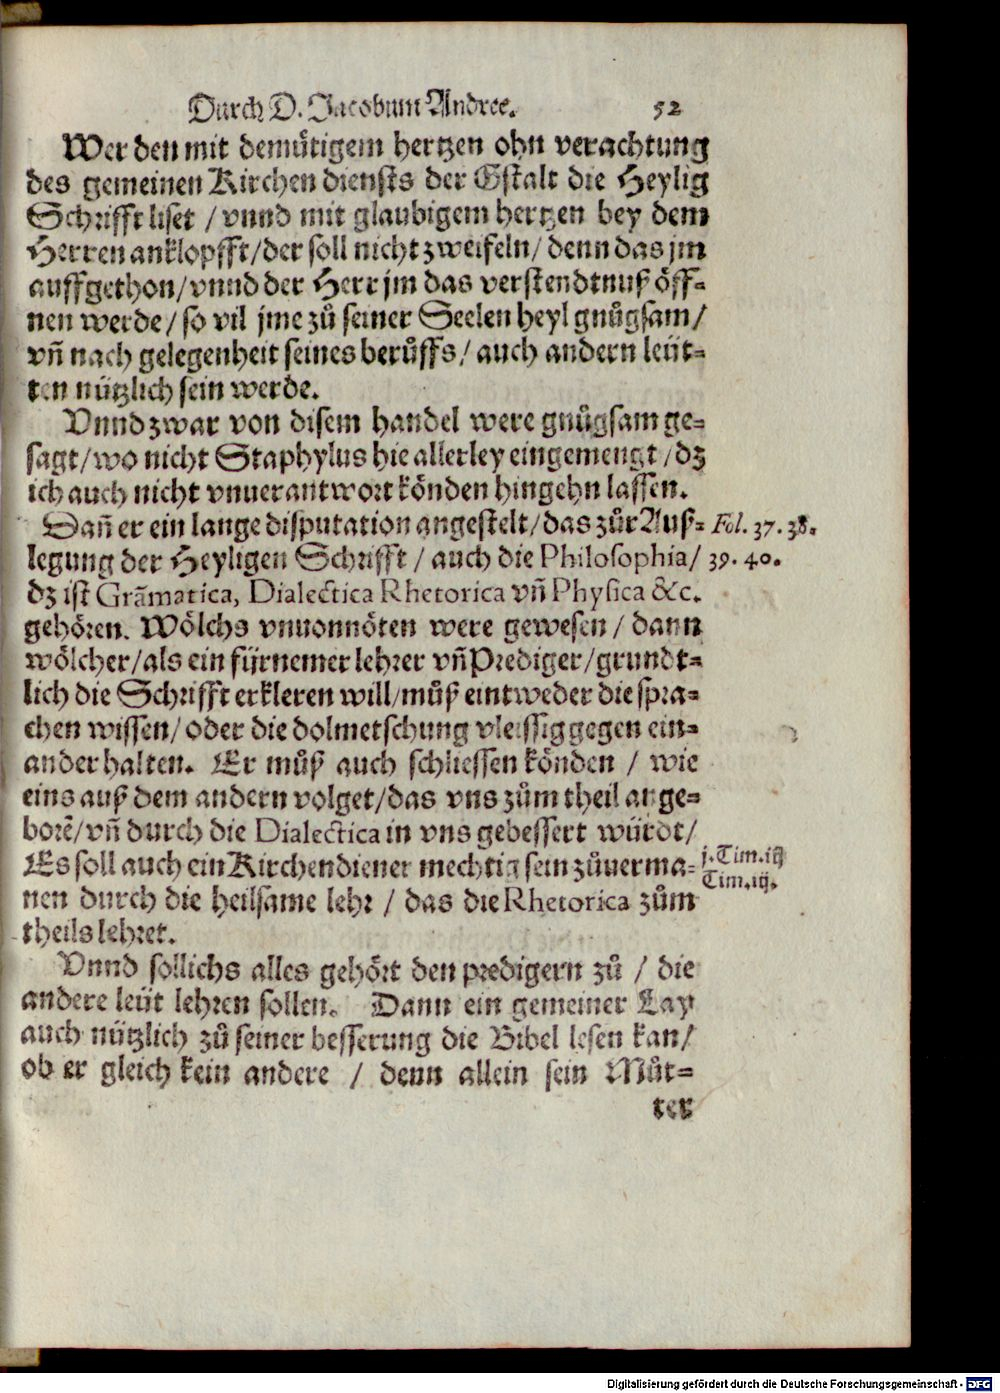 Durch D. Jacobum Andree. 52
Wer den mit demůtigem hertzen ohn verachtung
des gemeinen Kirchen diensts der Gstalt die Heylig
Schrifft liset / vnnd mit glaubigem hertzen bey dem
Herren anklopfft / der soll nicht zweifeln / denn das jm
auffgethon / vnnd der Herr jm das verstendtnuß öff-
nen werde / so vil jme zů seiner Seelen heyl gnůgsam /
vñ nach gelegenheit seines berůffs / auch andern leüt-
ten nützlich sein werde.
Vnnd zwar von disem handel were gnůgsam ge-
sagt / wo nicht Staphylus hie allerley eingemengt / dz
ich auch nicht vnuerantwort könden hingehn lassen.
Dañ er ein lange disputation angestelt / das zůr Auß- Fol. 37. 38.
legung der Heyligen Schrifft / auch die Philosophia / 39. 40.
dz ist Grãmatica, Dialectica Rhetorica vñ Physica &c.
gehören. Wölchs vnuonnöten were gewesen / dann
wölcher / als ein fürnemer lehrer vñ Prediger / grundt-
lich die Schrifft erkleren will / můß eintweder die spra-
chen wissen / oder die dolmetschung vleissig gegen ein-
ander halten. Er můß auch schliessen könden / wie
eins auß dem andern volget / das vns zům theil ange-
borẽ / vñ durch die Dialectica in vns gebessert würdt /
Es soll auch ein Kirchendiener mechtig sein zůuerma- j. Tim. iij
nen durch die heilsame lehr / das die Rhetorica zům Tim. iij.
theils lehret.
Vnnd sollichs alles gehört den predigern zů / die
andere leüt lehren sollen. Dann ein gemeiner Lay
auch nützlich zů seiner besserung die Bibel lesen kan /
ob er gleich kein andere / denn allein sein Můt-
ter
Digitalisierung gefördert durch die Deutsche Forschungsgemeinschaft - DFG